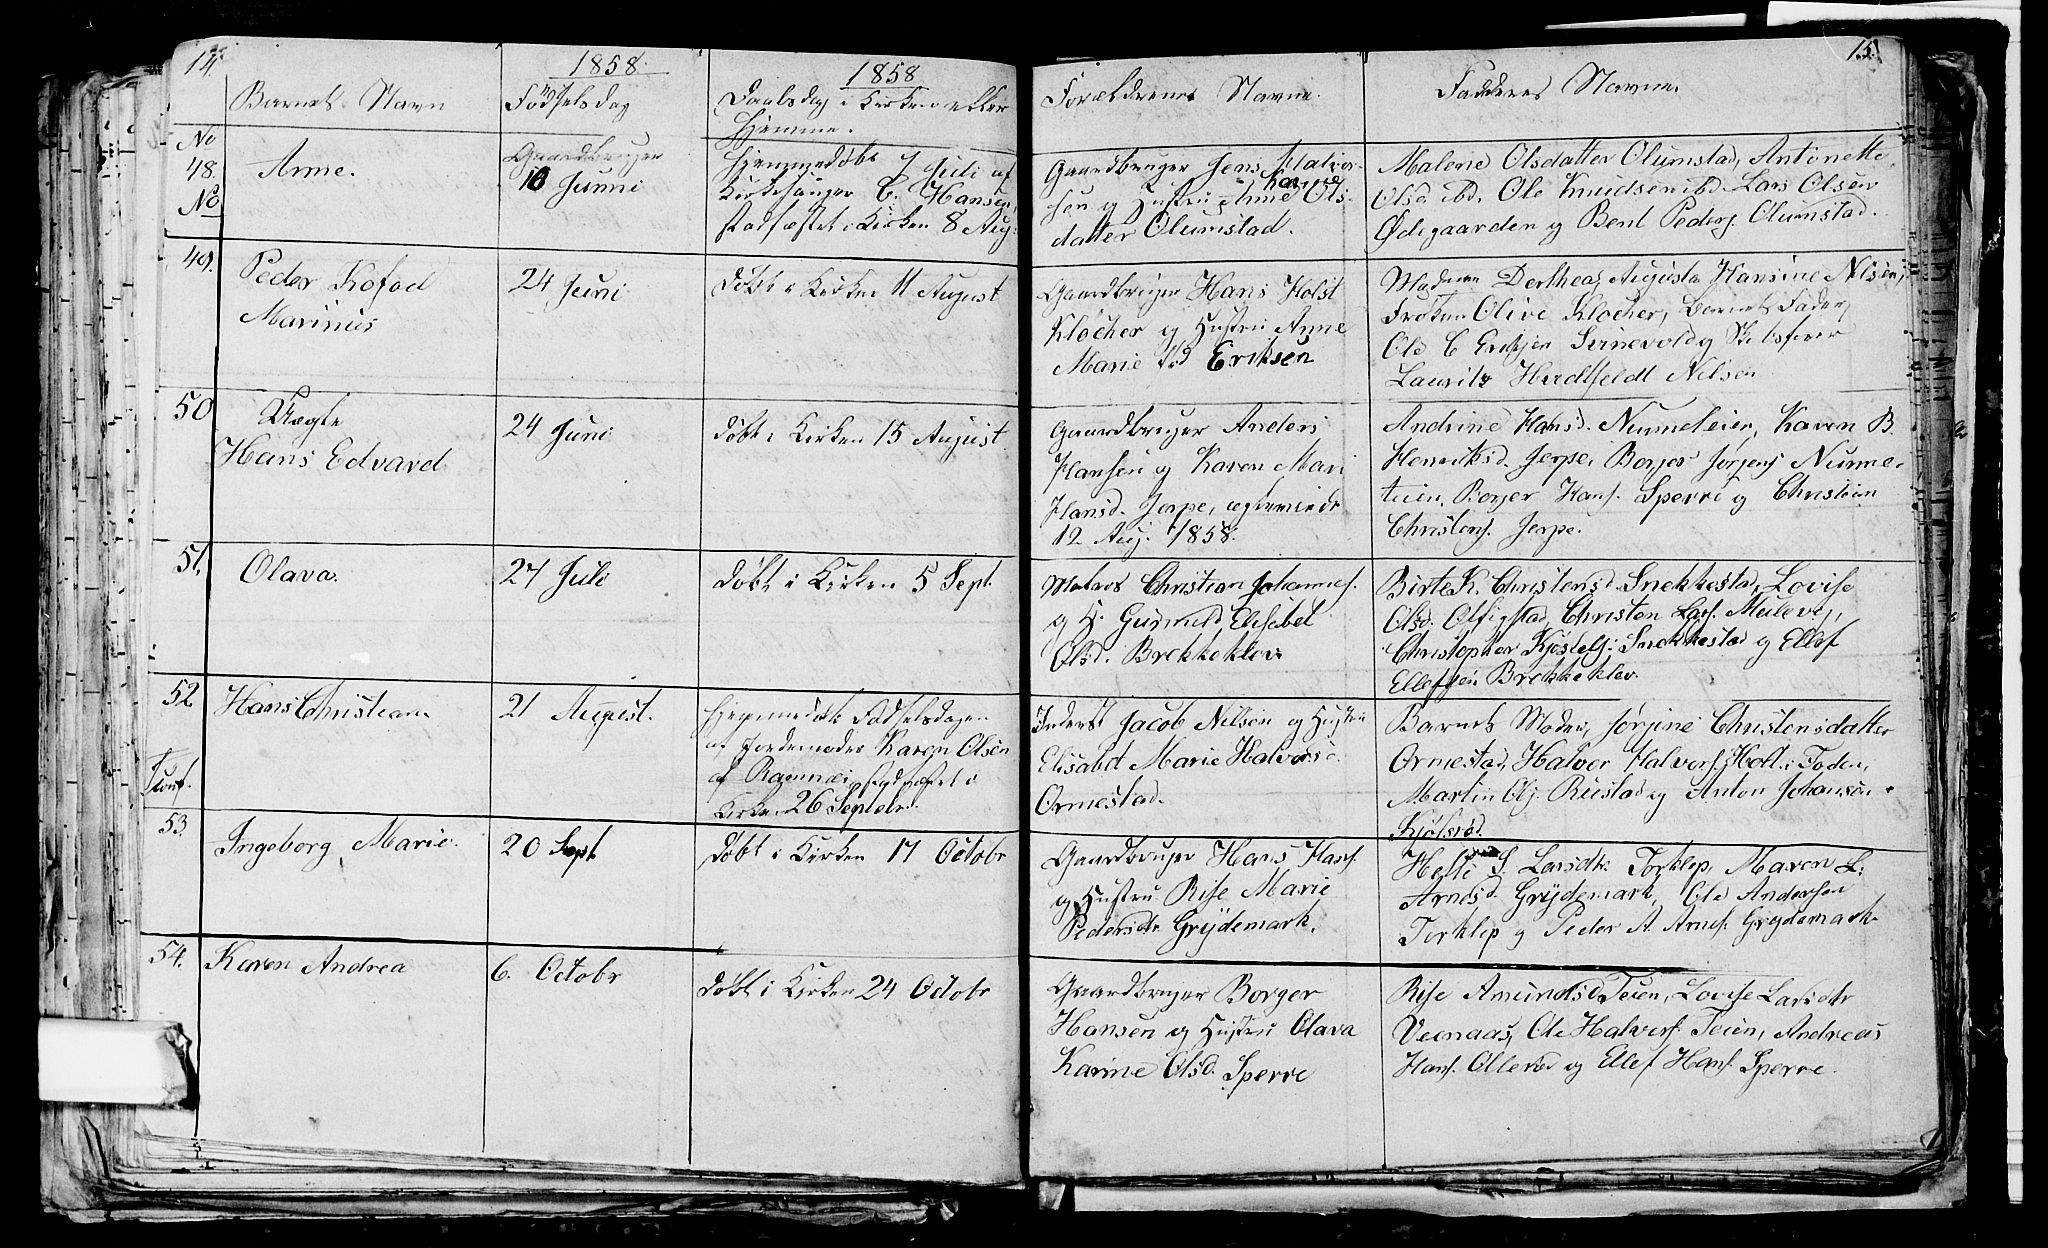 14.
1858.
1858
Barnets Navn
Fødselsdag
Daabsdag i Kirken eller
Hjemme.
No
48.
No
Anne.
Gaardbruger
10 Junni
Hjemmedøbt 7 Juli af
Kirkesanger C. Hansen,
stadfæstet i Kirken 8 Aug.
49.
Peder Kofod
Marinus
24 Juni
Døbt i Kirken 11 August
50
Uægte
Hans Edvard
24 Juni
Døbt i Kirken 15 August
51.
Olava.
27 Juli
Døbt i Kirken 5 Sept.
52
Hans Christian.
21 August.
Hjemmedøbt Fødselsdagen
af Jordemoder Karen Olsen
af Ramnæs, stadfæstet i
Kirken 26 Septebr.
53
Ingeborg Marie.
20 Sept
Døbt i Kirken 17 Octobr
54.
Karen Andrea
6. Octobr
Døbt i Kirken 24 Octobr
15.
Forældrenes Navne.
Faddernes Navne.
Gaardbruger Jens
Karine
sen og Hustru Anne Ols-
datter Olumstad.
Malene Olsdatter Olumstad, Antonette
Olsd. ibd. Ole Knudsen ibd. Lars Olsen
Ødegaarden og Bent Peders. Olumstad.
Gaardbruger Hans Holst
Kløcher og Hustru Anne
Marie fød Eriksen
Madame Dorthea Augusta Hansine Nilsen,
Frøken Olive Kløcher, Barnets Fader,
Ole C Svinevold og Skibsfører
Lauritz Nilsen
Gaardbruger Anders
Hansen og Karen Mari
Hansd. Jerpe, egteviede
12 Aug. 1858.
Andrine Hansd. Karen B.
Henriksd. Jerpe, Borger Jørgens. Nurme-
teien, Borger Hans. Sperre og Christian
Christens. Jerpe.
Matros Christian Johannes.
og H. Gunnild Elisabet
Olsd. Brekkeklev
Birte K. Christensd. Snekkestad, Lovise
Olsd. Christen Lars. Mulevig,
Christopher Snekkestad og Ellef
Ellefsen Brekkeklev.
Inderst Jacob Nilsen og Hustru
Elisabet Marie Halvorsd.
Ormestad.
Barnets Moder, Jørgine Christensdatter
Ormestad, Halvor Halvors. Holt i Foden,
Martin Ols. Rustad og Anton Johansen
Kjølsrød.
Gaardbruger Hans Hans.
og Hustru Rise Marie
Pedersdtr Grydemark.
Helle S. Larsdtr. Torklep, Maren L.
Arnesd. Grydemark, Ole Andersen
Torklep og Peder A. Arnes. Grydemark.
Gaardbruger Borger
Hansen og Hustru Olava
Karine Olsd. Sperre
Rise Amundsd. Teien, Lovise Larsdtr
Veenaas, Ole Halvors. Teien, Andreas
Hans. Ollerød og Ellef Hans. Sperre.